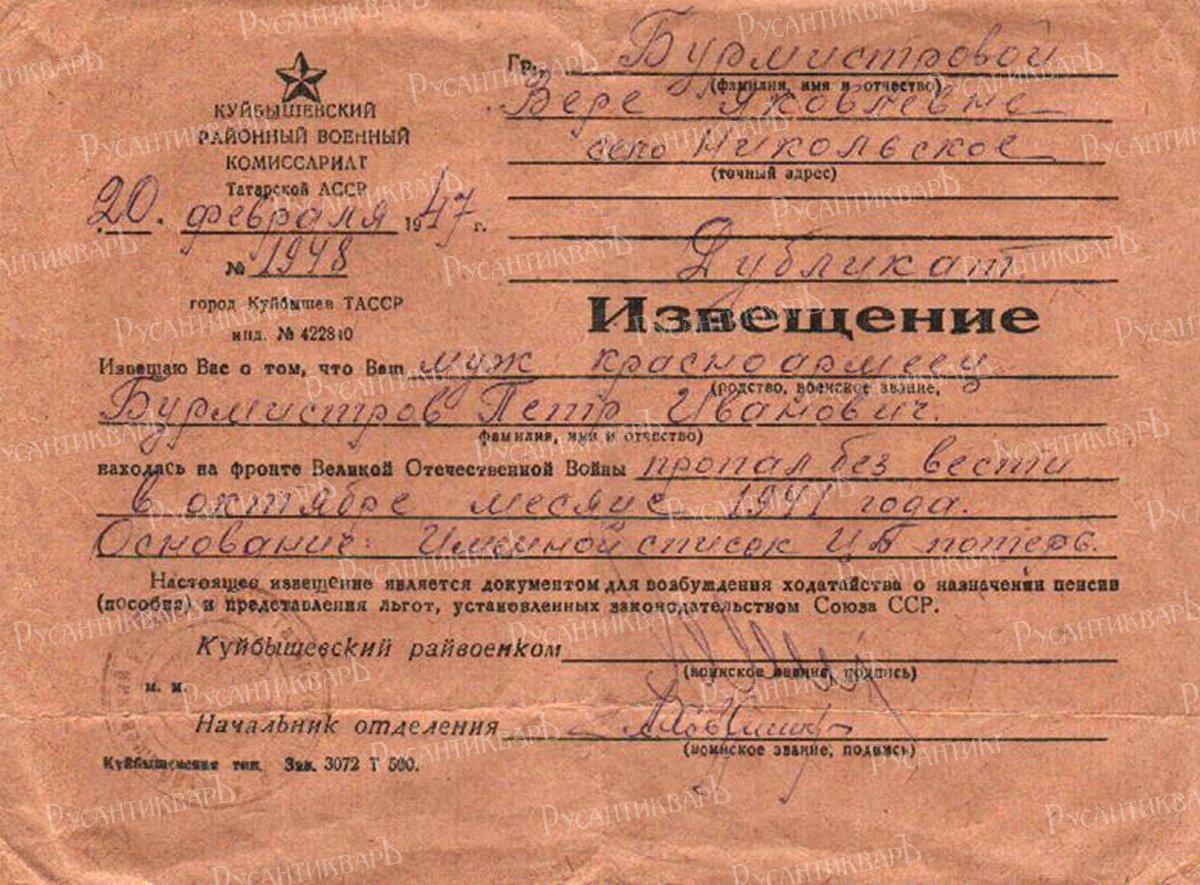 КУЙБЫШЕВСКИЙ
РАЙОННЫЙ ВОЕННЫЙ
КОМИССАРИАТ
Татарской АССР
20. февраля 1947 г.
№ 1948
город Куйбышев ТАССР
инд. № 422840
Гр. Бурмистровой
(фамилия, имя и отчество)
Вере Яковлевне
село Никольское
(точный адрес)
Дубликат
Извещение
Извещаю Вас о том, что Ваш муж красноармеец
(родство, воинское звание,
Бурмистров Петр Иванович.
фамилия, имя и отчество)
находясь на фронте Великой Отечественной Войны пропал без вести
в октябре месяце 1941 года.
Основание: Именной список ЦБ потерь.
Настоящее извещение является документом для возбуждения ходатайства о назначении пенсии
(пособия) и представления льгот, установленных законодательством Союза ССР.
Куйбышевский райвоенком
(воинское звание, подпись)
м. п.
Начальник отделения
(воинское звание, подпись)
Куйбышевская тип. Зак. 3072 Т 500.
РусАнтикварЪ